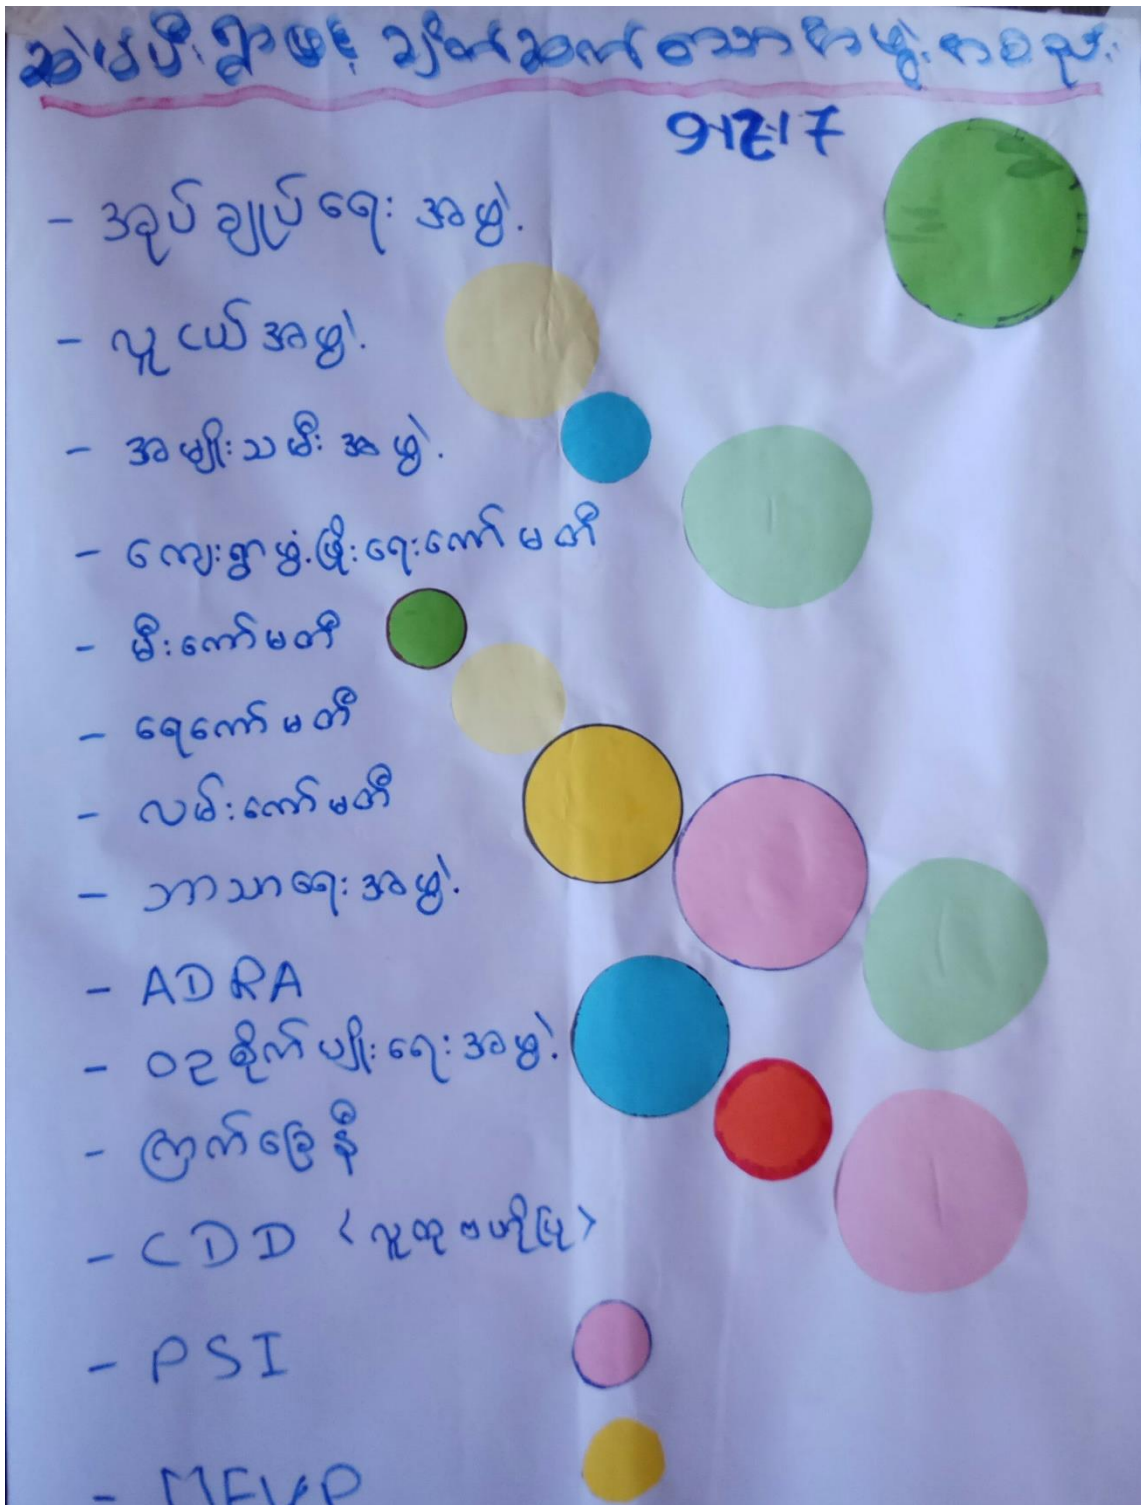 ဆဲမပီးရွာမှနှင့် ချိတ်ဆက်သောအဖွဲ့အစည်း
9.12.17
- အုပ်ချုပ်ရေးအဖွဲ့
- လူငယ်အဖွဲ့
- အမျိုးသမီးအဖွဲ့
- ကျေးရွာဖွံ့ဖြိုးရေးကော်မတီ
- မီးကော်မတီ
- ရေကော်မတီ
- လမ်းကော်မတီ
- ဘာသာရေးအဖွဲ့
- ADRA
- ဝဥစိုက်ပျိုးရေးအဖွဲ့
- ကြက်ခြေနီ
- CDD <လူထုဗဟိုပြု>
- PSI